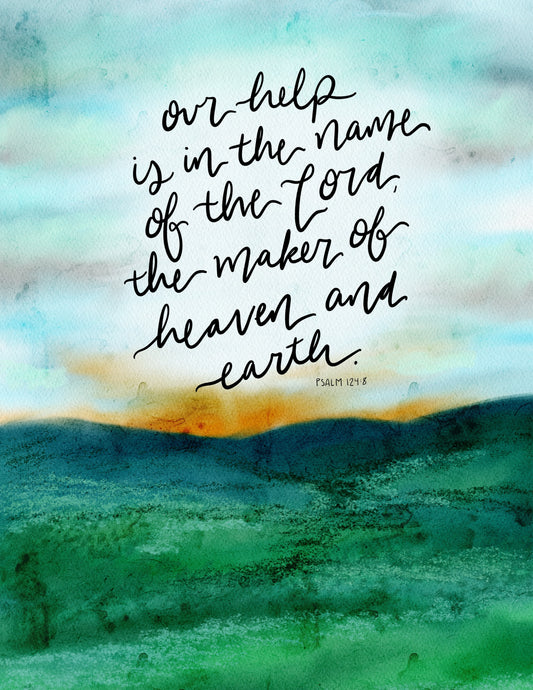 our help
is in the name
of the Lord,
the maker of
heaven and
earth.
PSALM 124:8